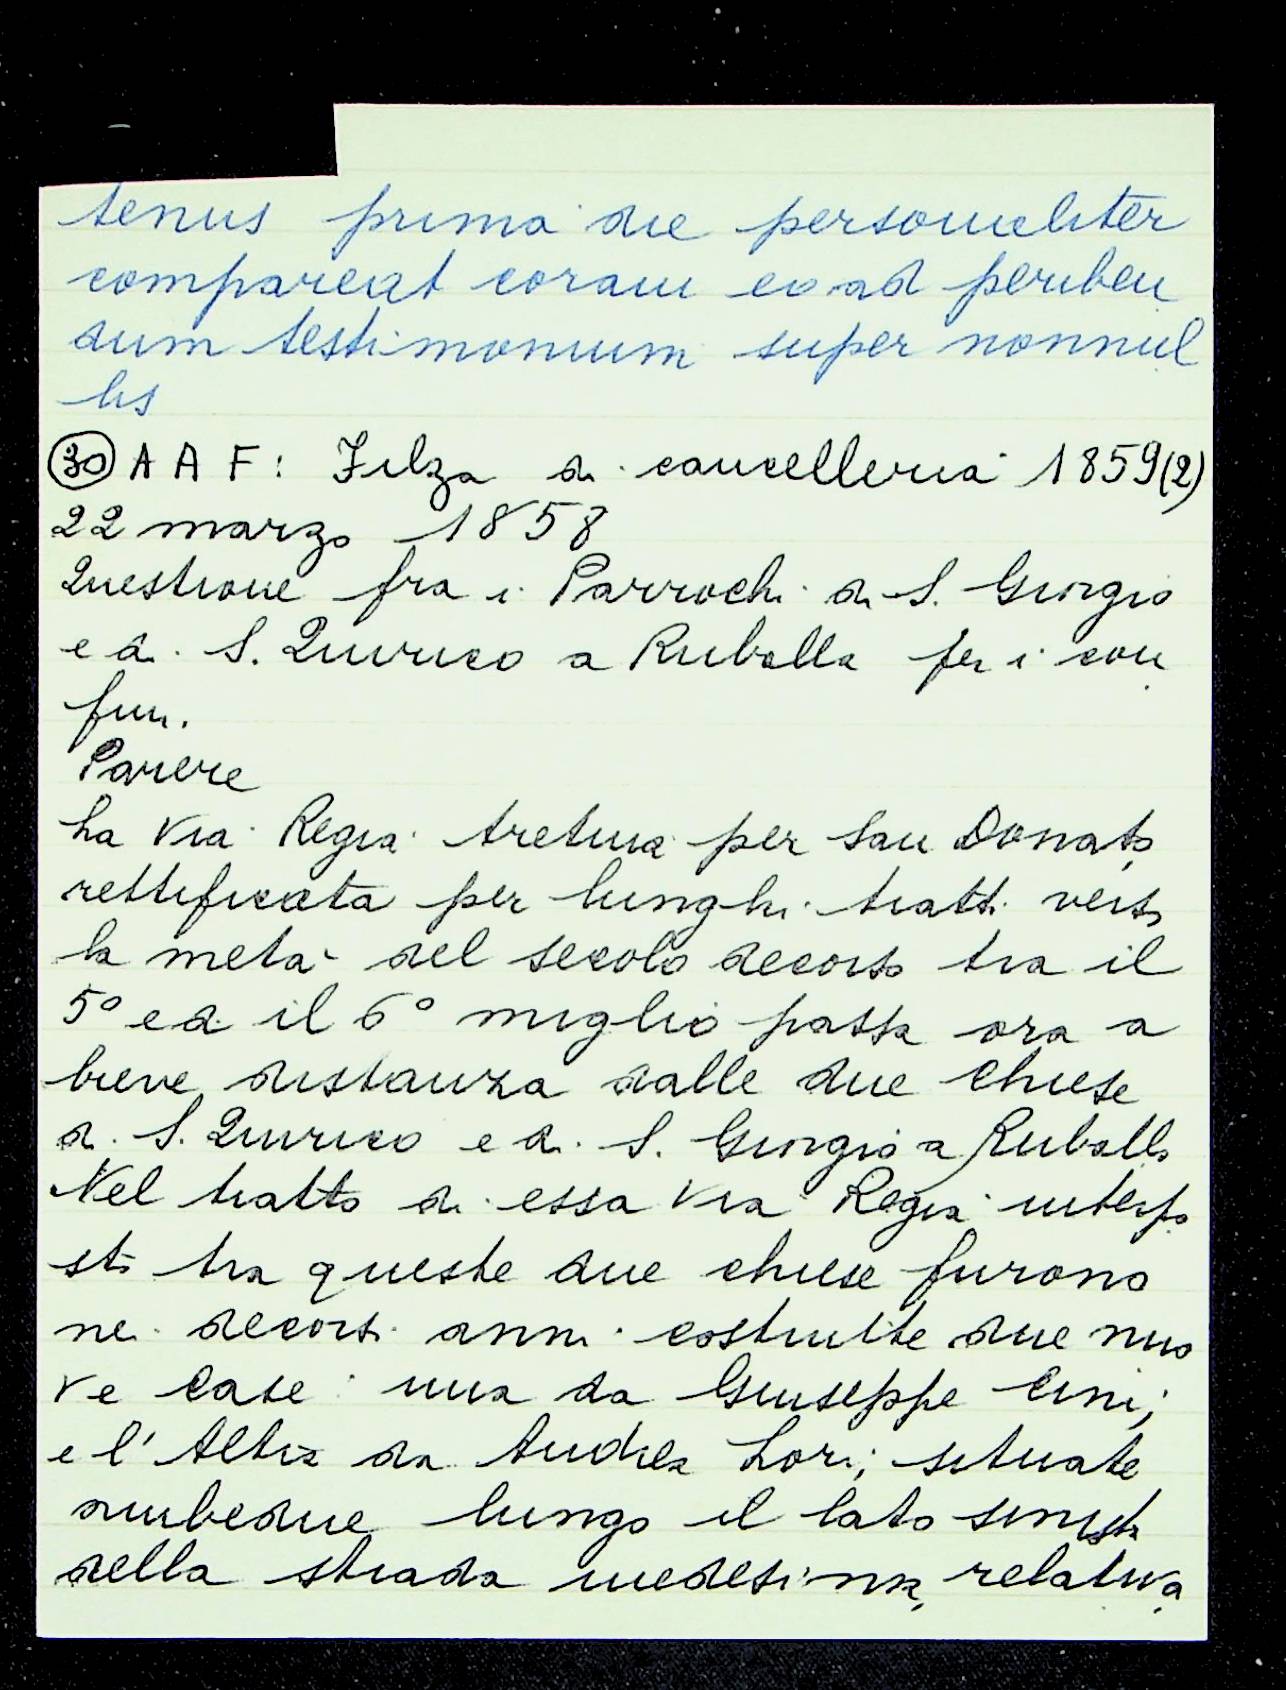 tenus prima die personaliter
compareat coram eo ad periben
dum testimonium super nonnul
lis
30 A A F: Filza di cancelleria 1859(2)
22 marzo 1858
Questione fra i Parrochi di S. Giorgio
e di S. Quirico a Ruballa per i con
fini.
Parere
La Via Regia aretina per San Donato
rettificata per lunghi tratti verso
la metà del secolo decorso tra il
5° ed il 6° miglio passa ora a
breve distanza dalle due Chiese
di S. Quirico e di S. Giorgio a Ruballa
Nel tratto di essa Via Regia interpo
sto tra queste due chiese furono
nei decorsi anni costruite due nuo
ve Case: una da Giuseppe Cini;
e l'Altra da Andrea Lori; situate
ambedue lungo il lato sinistro
della strada medesima, relativa